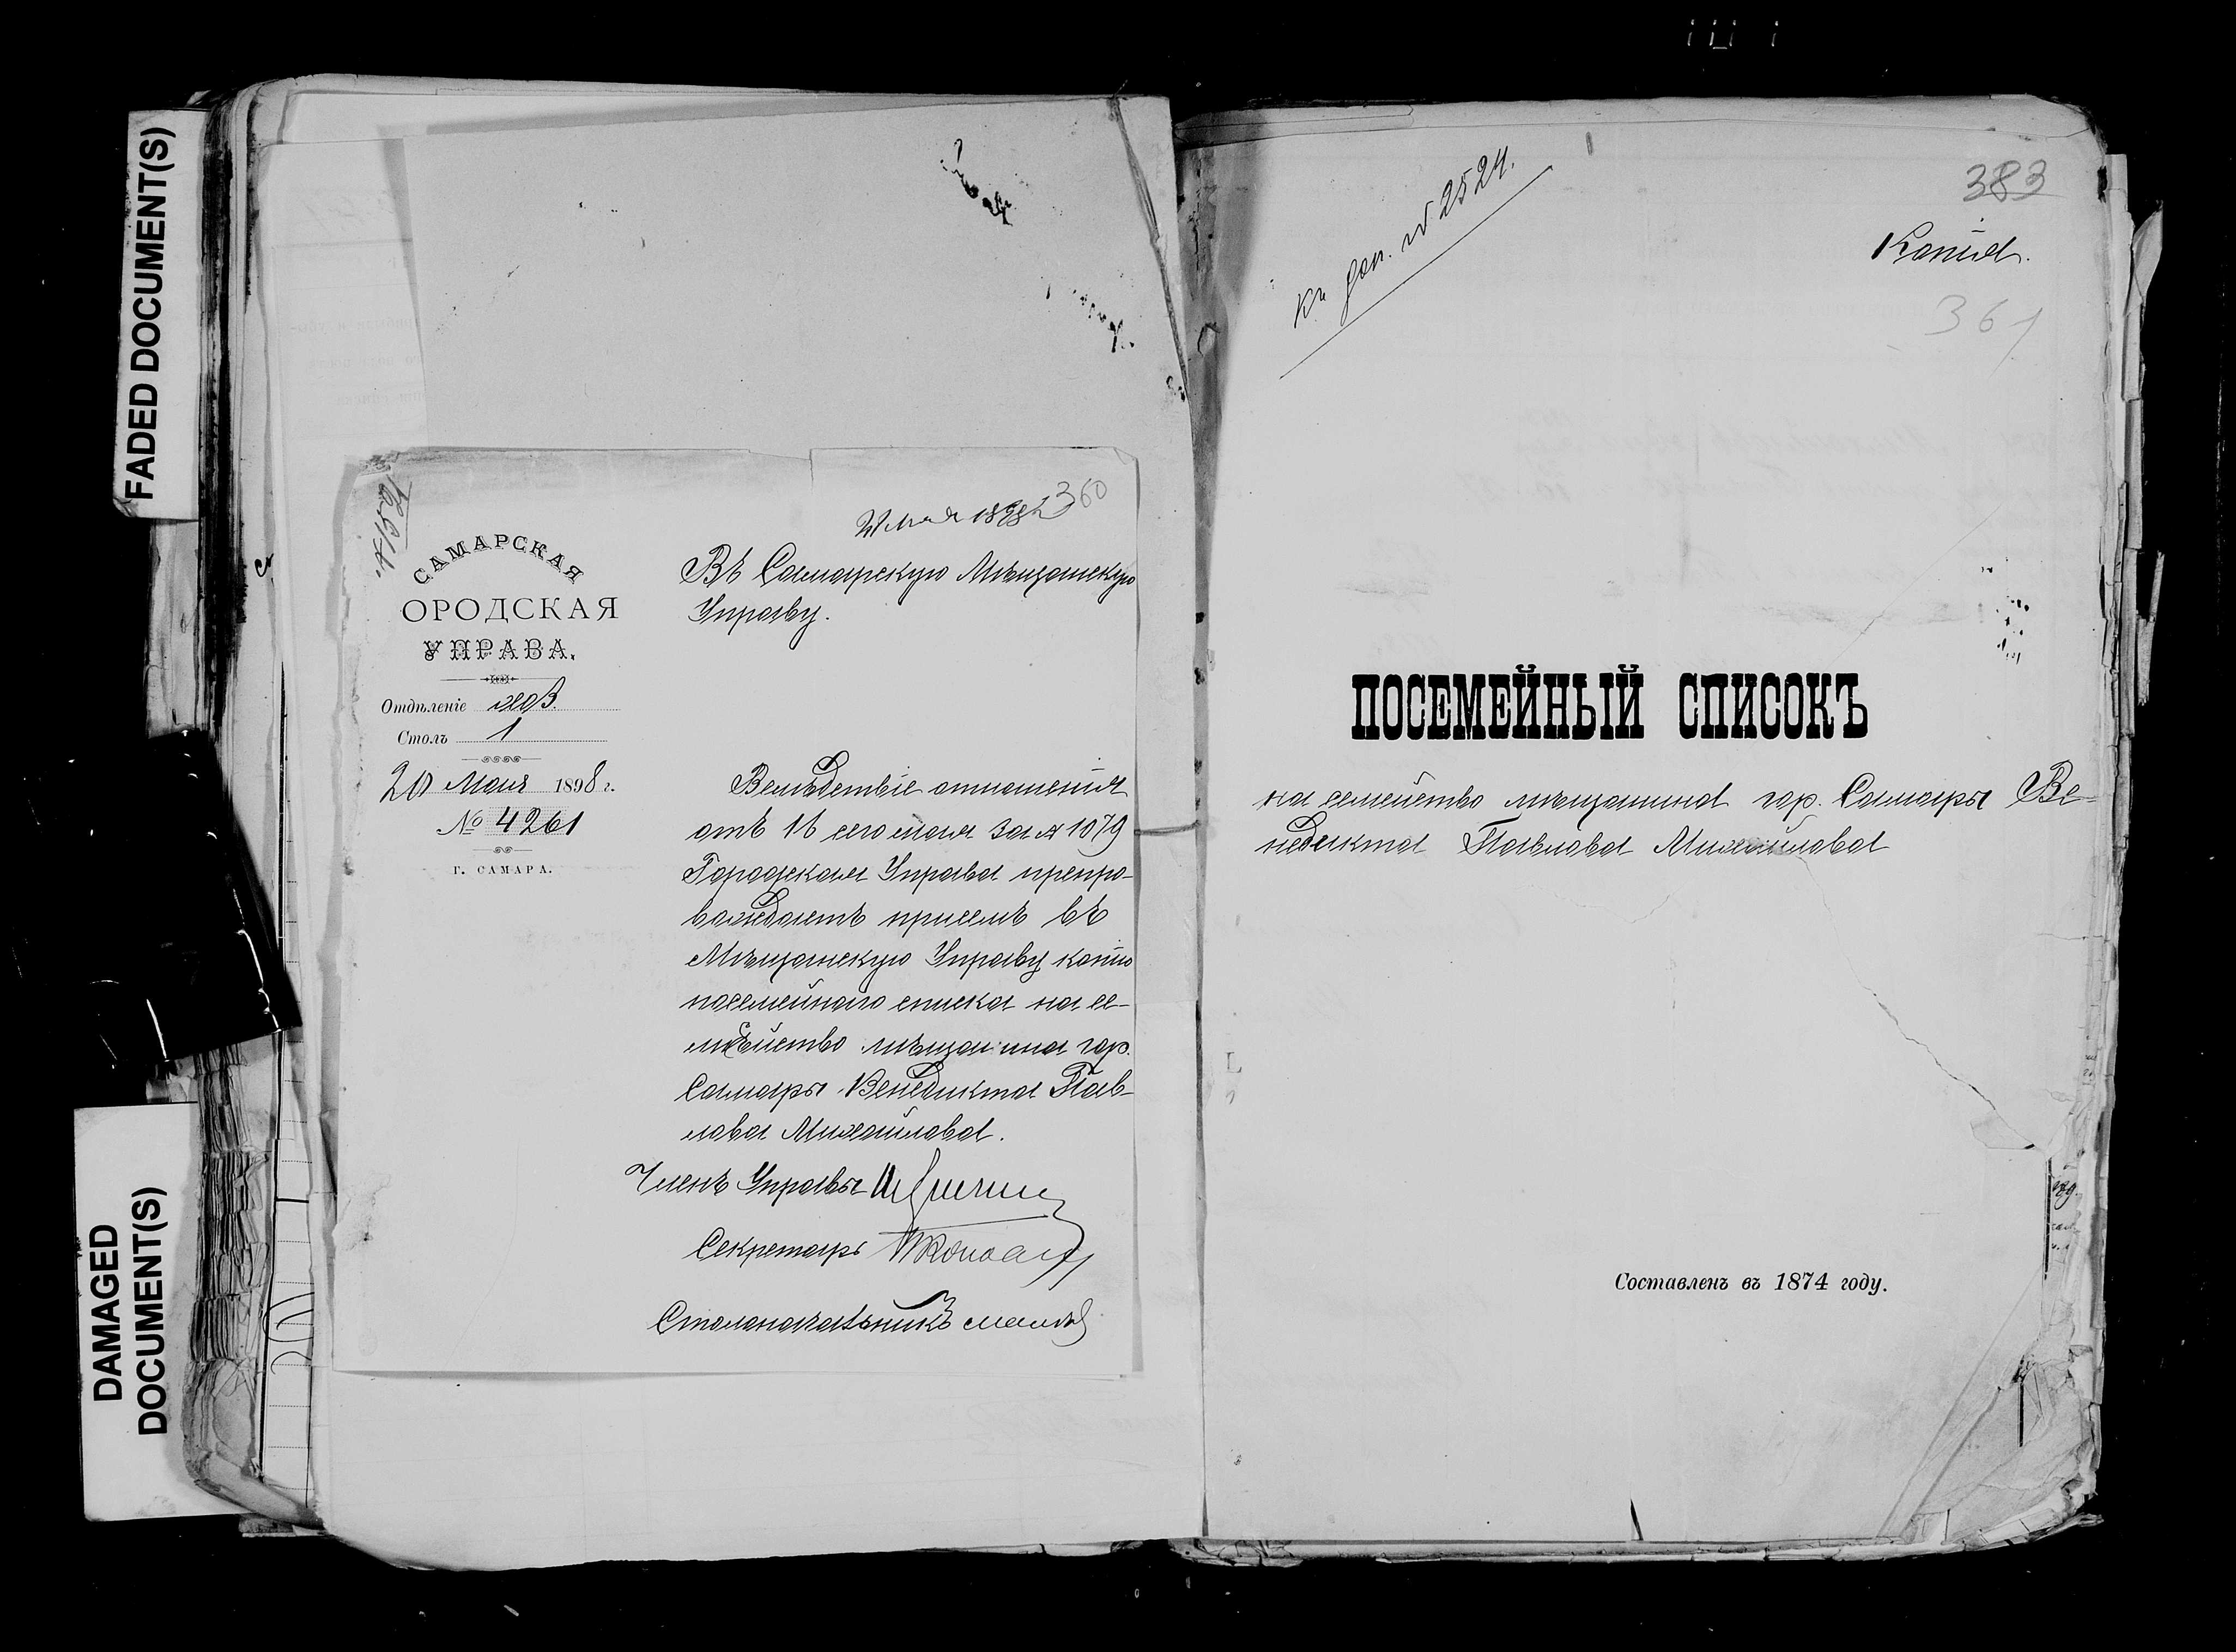 FADED DOCUMENT(S)
DAMAGED
DOCUMENT(S)
360
САМАРСКАЯ
ОРОДСКАЯ
УПРАВА.
Отдѣленіе хоз.
Столъ 1
20 Мая 1898 г.
№ 4261
Г. САМАРА.
Въ Самарскую Мѣщанскую
Управу.
Вслѣдствіе отношенія
отъ 16 сего мая за № 1079
Городская Управа препро-
вождаетъ присемъ въ
Мѣщанскую Управу копію
посемейнаго списка на се-
мѣйство мѣщанина гор.
Самары Венедикта Пав-
лова Михайлова.
Членъ Управы
Секретарь
Столоначальникъ
383
Копія.
361
Къ доп. № 2524.
ПОСЕМЕЙНЫЙ СПИСОКЪ
на семейство мѣщанина гор. Самары Ве-
недикта Павлова Михайлова
Составленъ въ 1874 году.